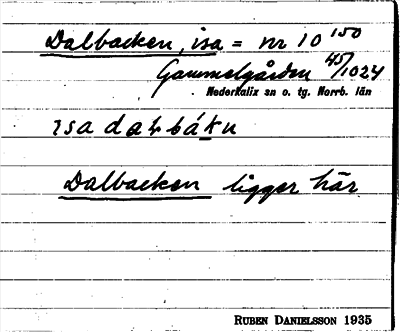 Dalbacken, isa = nr 10 150
Gammelgården 45/1024
Nederkalix sn o. tg. Norrb. län
isa dalbáku
Dalbacken ligger här
RUBEN DANIELSSON 1935